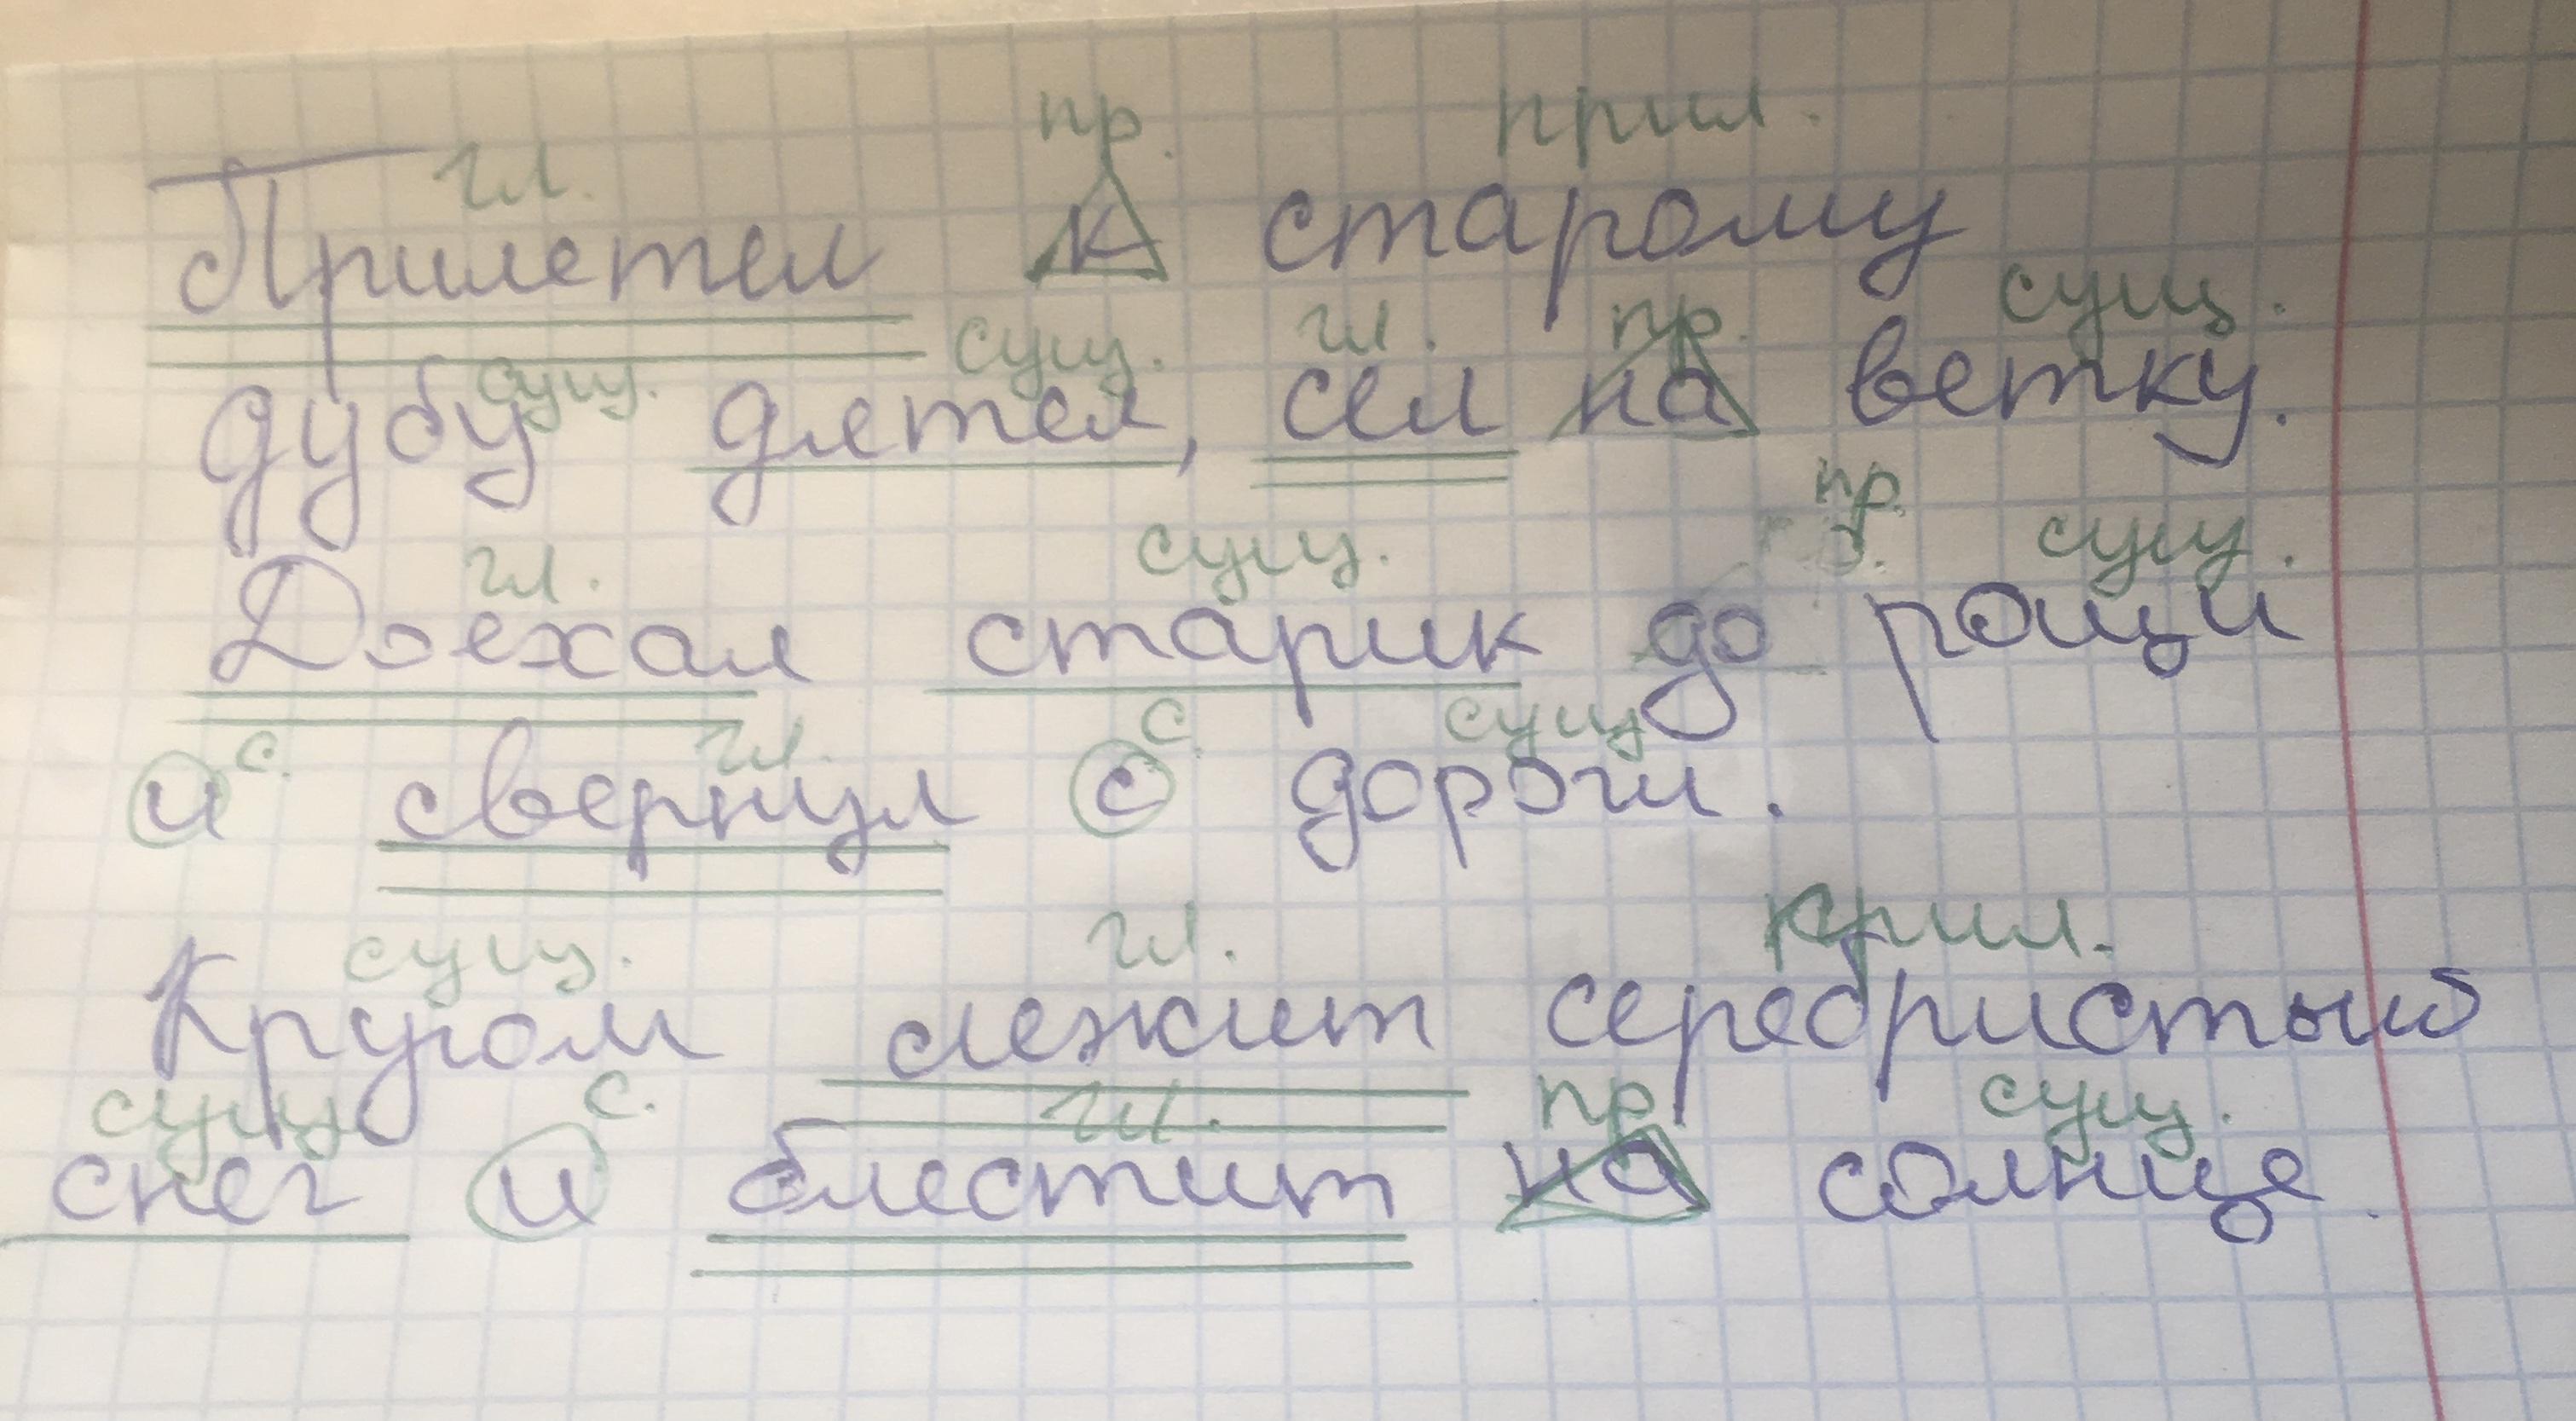 гл. пр. прил.
Прилетел к старому
сущ. сущ. гл. пр. сущ.
дубу дятел, сел на ветку.
гл. сущ. пр. сущ.
Доехал старик до рощи
с. гл. с. сущ
и свернул с дороги.
сущ. гл. прил.
Кругом лежит серебристый
сущ с. гл. пр. сущ.
снег и блестит на солнце.